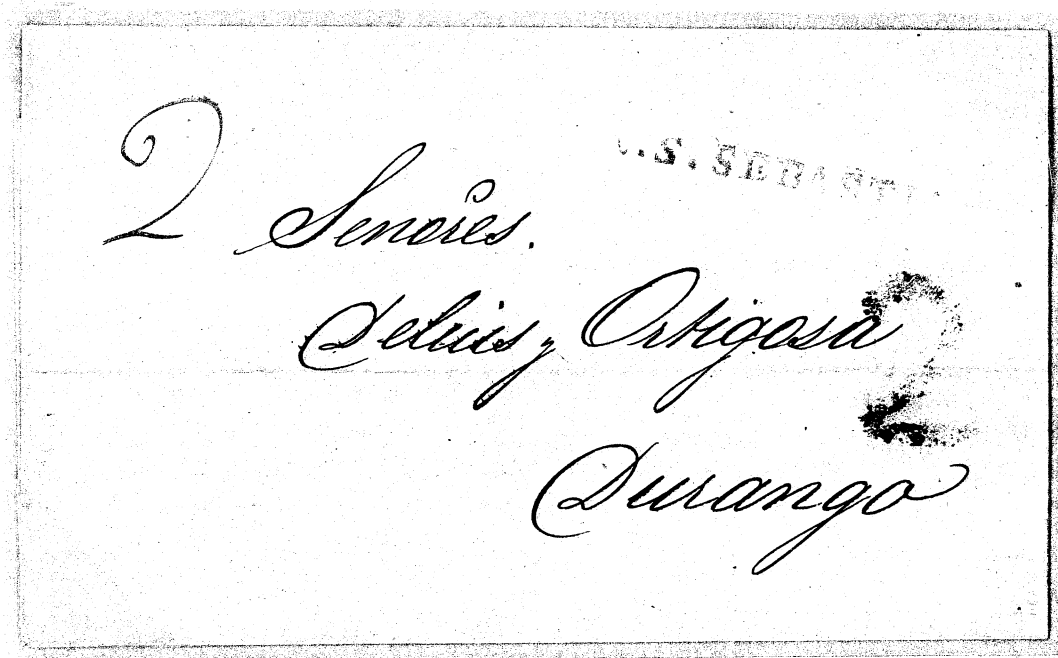 2
.S.SEBASTI
Señores.
Deluis y Ortigosa
2
Durango